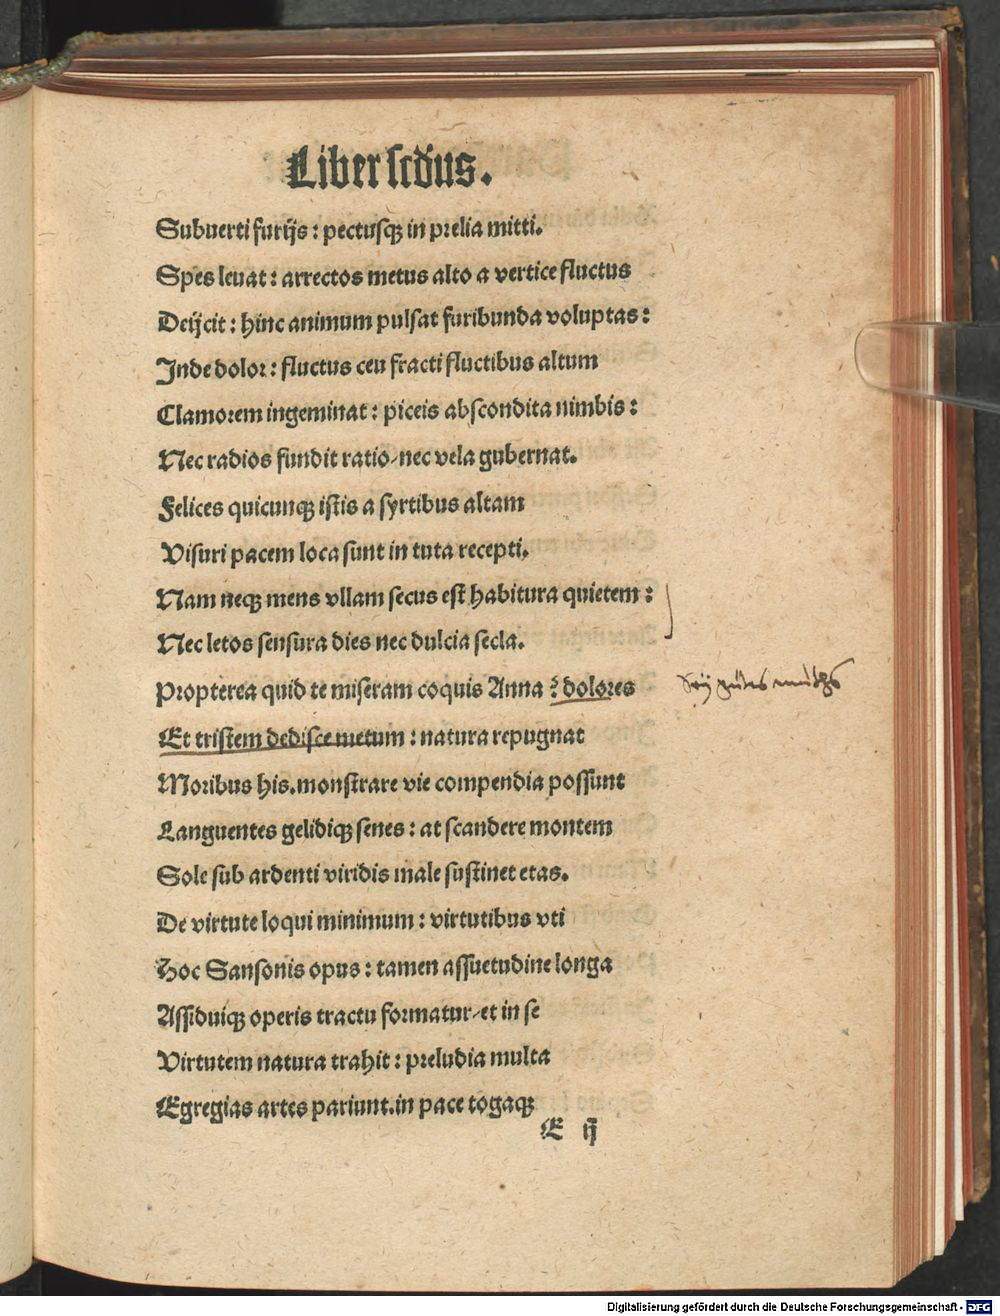 Liber scđus.
Subuerti furijs : pectusqꝫ in prelia mitti.
Spes leuat : arrectos metus alto a vertice fluctus
Deijcit : hinc animum pulsat furibunda voluptas :
Inde dolor : fluctus ceu fracti fluctibus altum
Clamorem ingeminat : piceis abscondita nimbis :
Nec radios fundit ratio/nec vela gubernat.
Felices quicunqꝫ istis a syrtibus altam
Visuri pacem loca sunt in tuta recepti.
Nam neqꝫ mens vllam secus est habitura quietem :
Nec letos sensura dies nec dulcia secla.
Propterea quid te miseram coquis Anna ? dolores
Sey gůtes můths
Et tristem dedisce metum : natura repugnat
Moribus his.monstrare vie compendia possunt
Languentes gelidiqꝫ senes : at scandere montem
Sole sub ardenti viridis male sustinet etas.
De virtute loqui minimum : virtutibus vti
Hoc Sansonis opus : tamen assuetudine longa
Assiduiqꝫ operis tractu formatur/et in se
Virtutem natura trahit : preludia multa
Egregias artes pariunt.in pace togaqꝫ
E ij
Digitalisierung gefördert durch die Deutsche Forschungsgemeinschaft - DFG